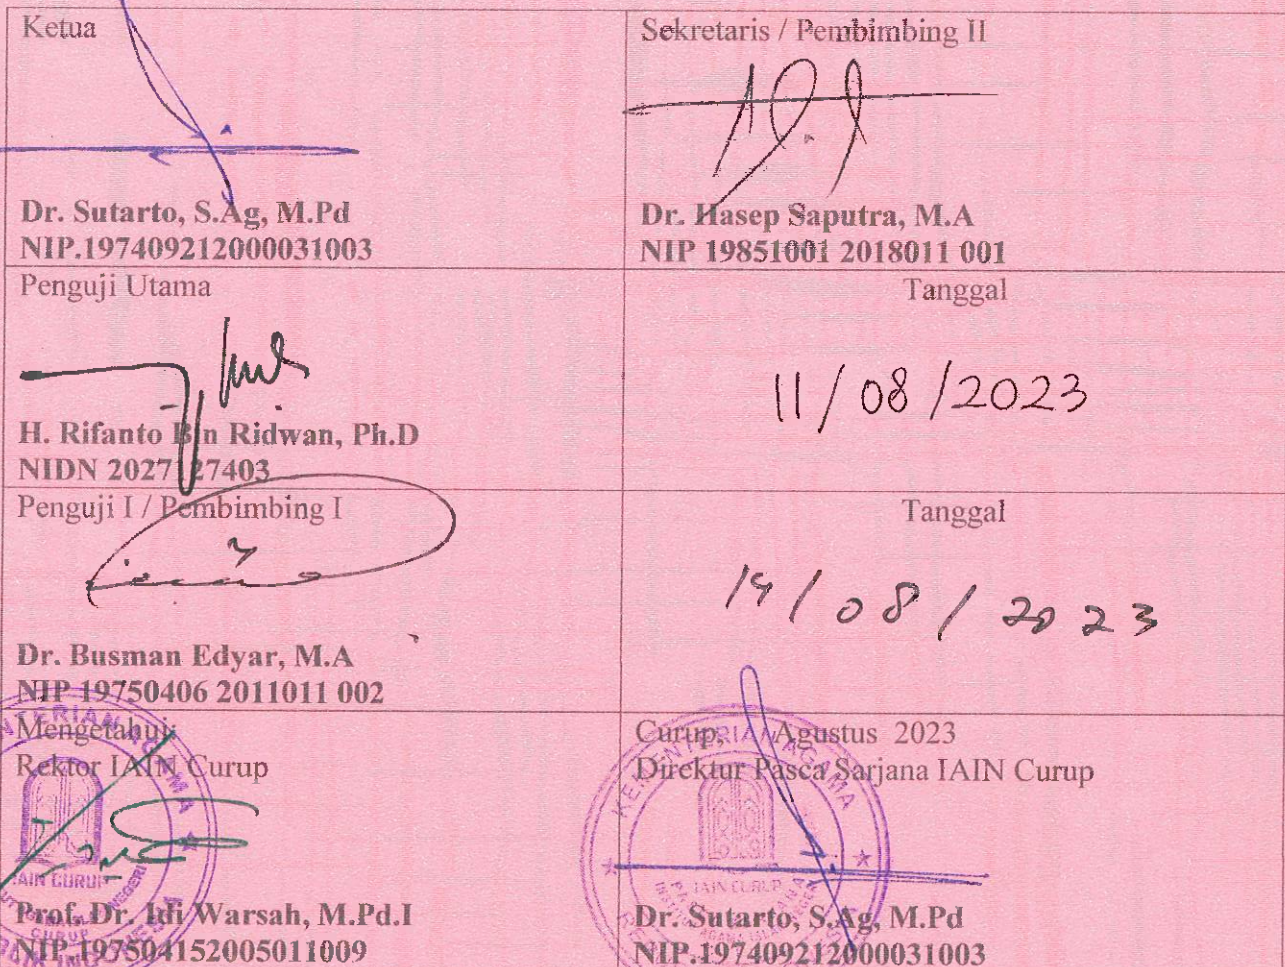 Ketua
Dr. Sutarto, S.Ag, M.Pd
NIP.197409212000031003
Sekretaris / Pembimbing II
Dr. Hasep Saputra, M.A
NIP 19851001 2018011 001
Penguji Utama
H. Rifanto Bin Ridwan, Ph.D
NIDN 2027127403
Tanggal
11/08/2023
Penguji I / Pembimbing I
Dr. Busman Edyar, M.A
NIP 19750406 2011011 002
Tanggal
14/08/2023
Mengetahui
Rektor IAIN Curup
IAIN CURUP
Prof. Dr. Idi Warsah, M.Pd.I
NIP.197504152005011009
Curup, Agustus 2023
Direktur Pasca Sarjana IAIN Curup
KEMENTERIAN AGAMA
IAIN CURUP
Dr. Sutarto, S.Ag, M.Pd
NIP.197409212000031003